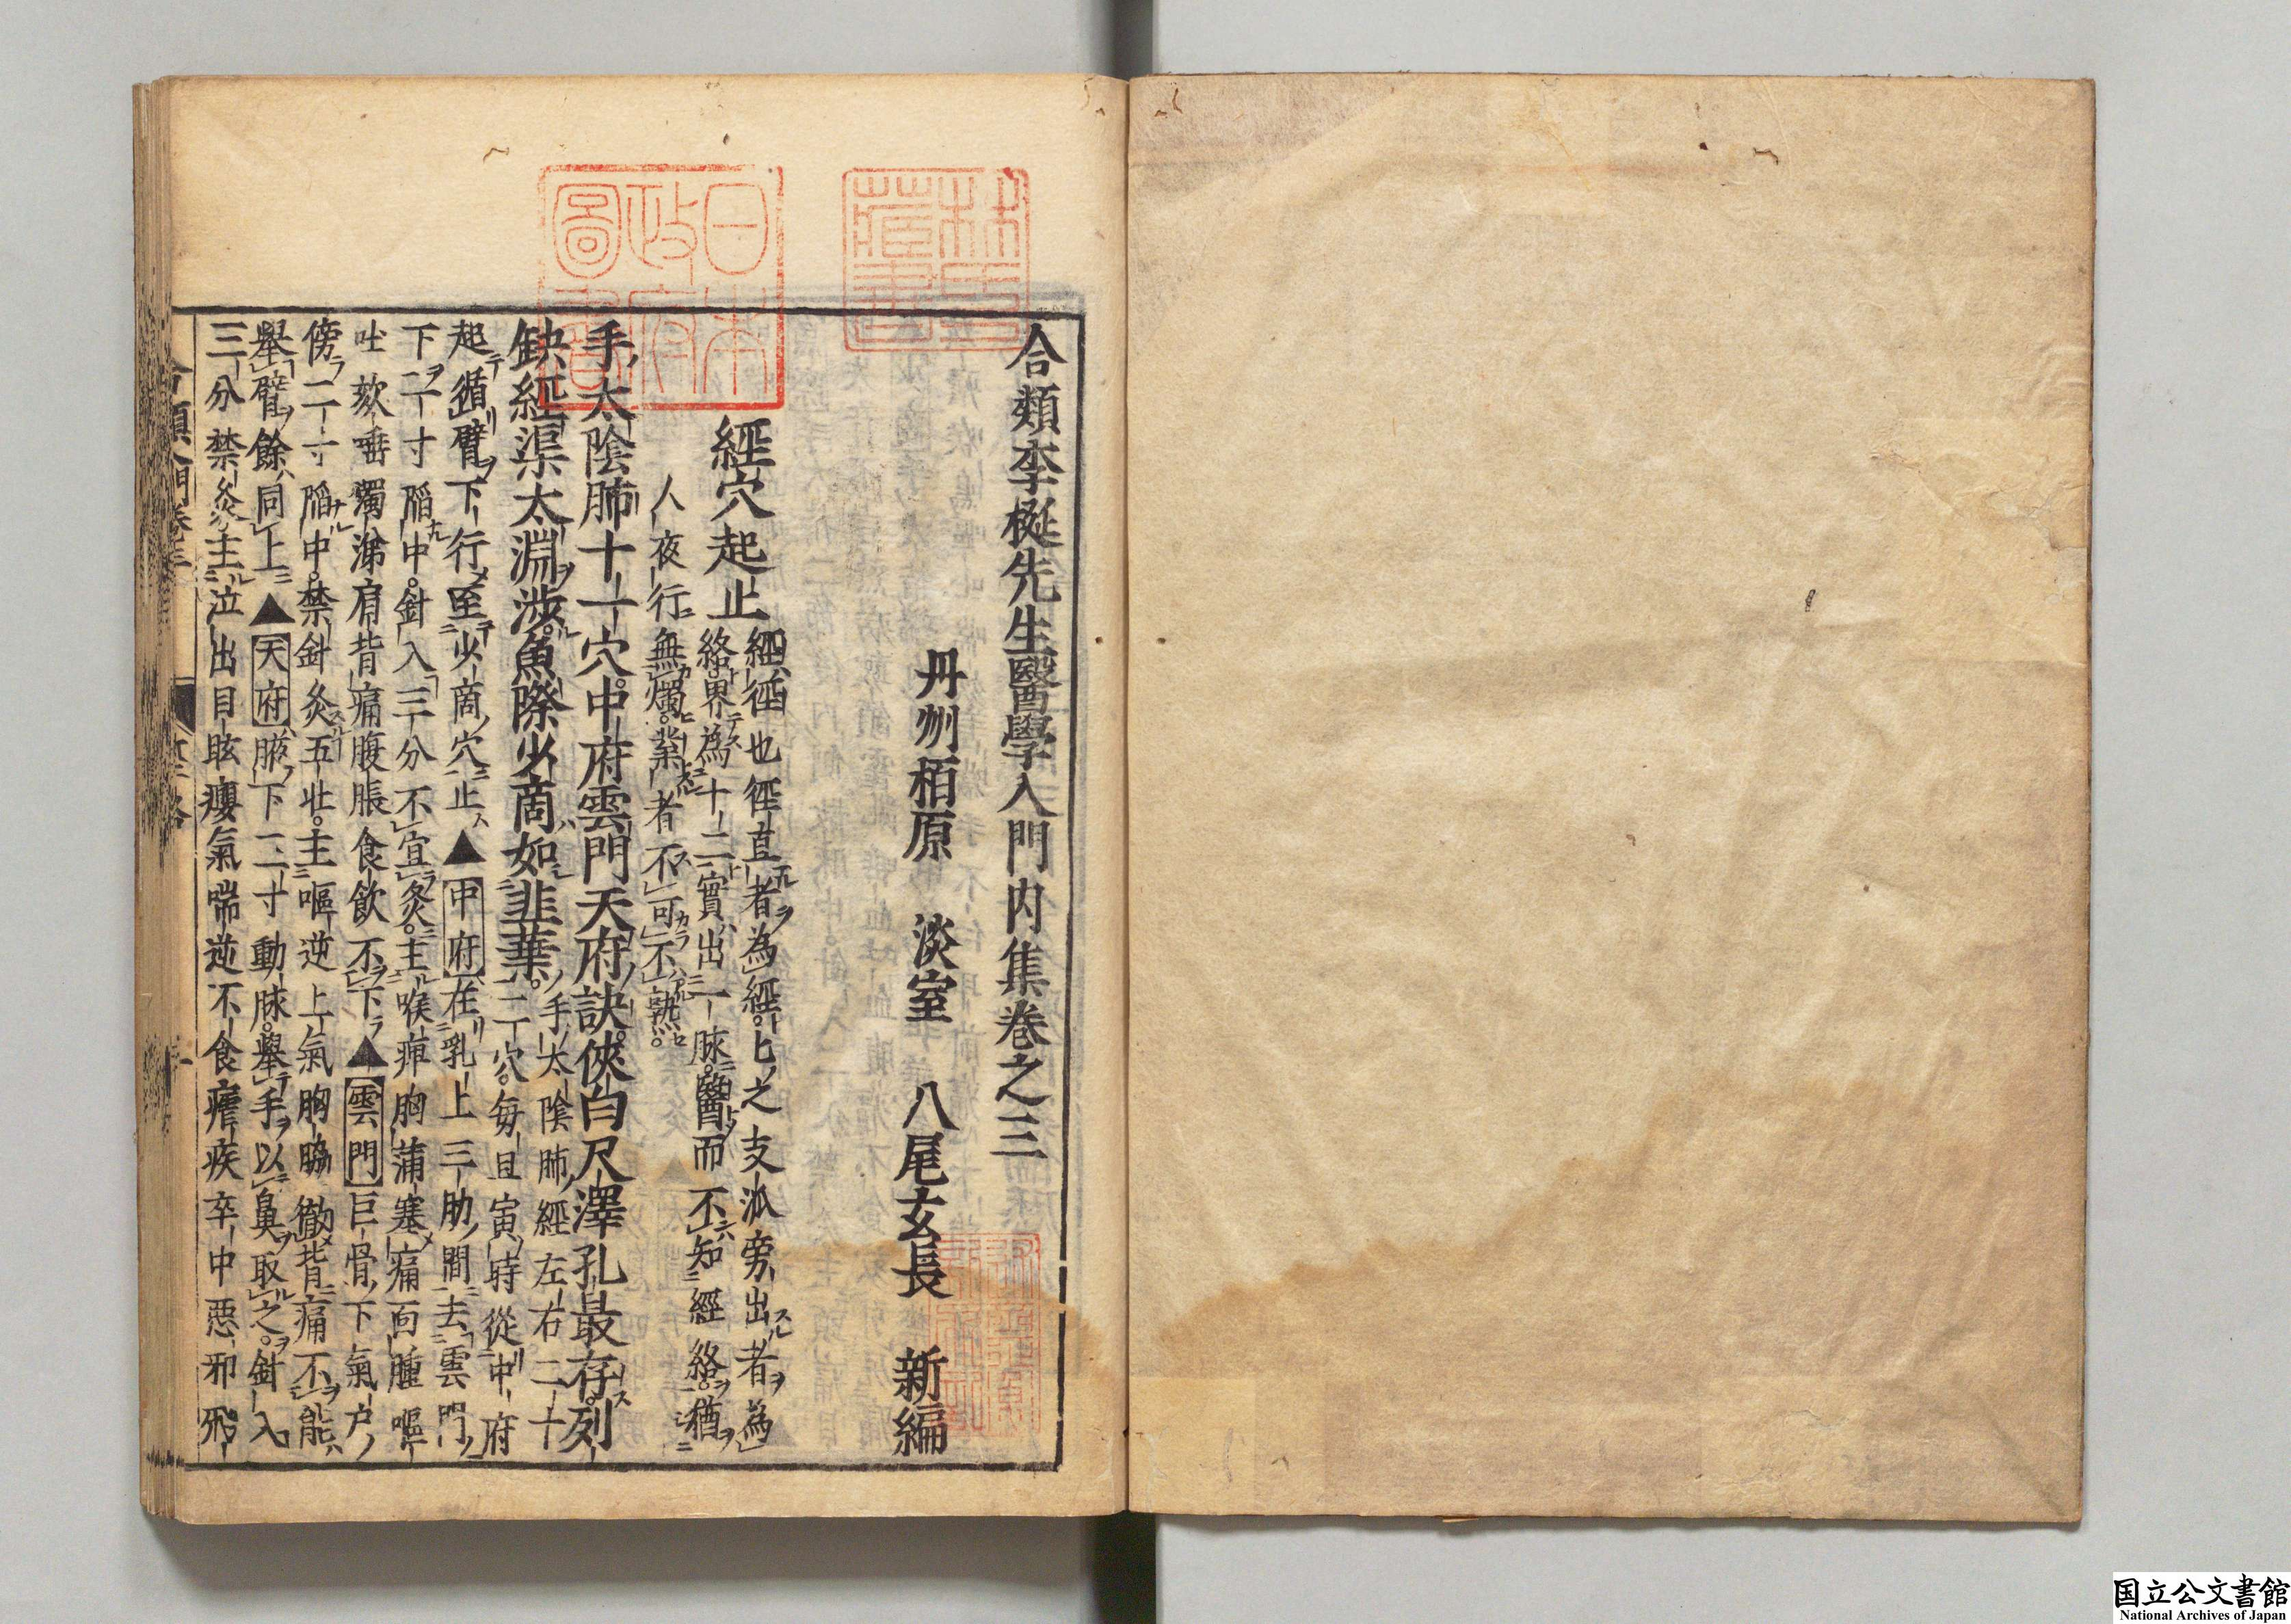 合類李梴先生醫學入門内集卷之三
丹州栢原　淡室　八尾玄長　新編
經穴起止
經徑也徑直者為經經之支派旁出者為
絡界為十二實出一脉醫而不知經絡猶
人夜行無燭業者不可不熟
手太陰肺十一穴中府雲門天府訣俠白尺澤孔最存列
缺經渠太淵渉魚際少商如韭葉
手太陰肺經左右二十
二穴每旦寅時從中府
起循臂下行至少商穴止▲中府在乳上三肋間去雲門
下一寸陷中針入三分不宜灸主喉痺胸蒲塞痛面腫嘔
吐欬唾濁涕肩背痛腹脹食飲不下▲雲門巨骨下氣户
傍二寸陷中禁針灸五壯主嘔逆上氣胸脇徹背痛不能
舉臂餘同上▲天府腋下三寸動脉舉手以鼻取之針入
三分禁灸主泣出目眩癭氣喘逆不食瘧疾卒中惡邪飛
日本
政府
圖書
林氏
藏書
国立公文書館
National Archives of Japan